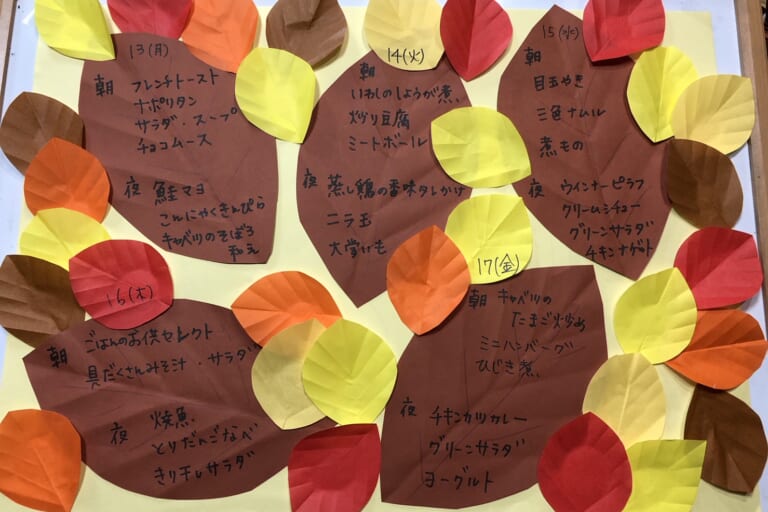 13(月)
朝 フレンチトースト
ナポリタン
サラダ・スープ
チョコムース
夜 鮭マヨ
こんにゃくきんぴら
キャベツのそぼろ
和え
14(火)
朝
いわしのしょうが煮
炒り豆腐
ミートボール
夜 蒸し鶏の香味タレかけ
ニラ玉
大学いも
15(水)
朝
目玉やき
三色ナムル
煮もの
夜 ウインナーピラフ
クリームシチュー
グリーンサラダ
チキンナゲット
16(木)
朝 ごはんのお供セレクト
具だくさんみそ汁・サラダ
夜 焼魚
とりだんごなべ
きり干しサラダ
17(金)
朝 キャベツの
たまご炒め
ミニハンバーグ
ひじき煮
夜 チキンカツカレー
グリーンサラダ
ヨーグルト